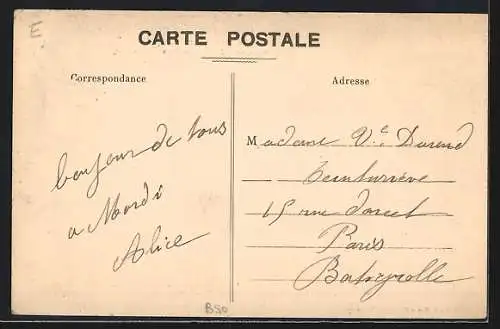 E.
CARTE POSTALE
Correspondance
Adresse
bonjour de tous
a Mardi
Alice
Madame Ve Durand
Teinturière
15 rue Darcet
Paris
Batignolle
BS0